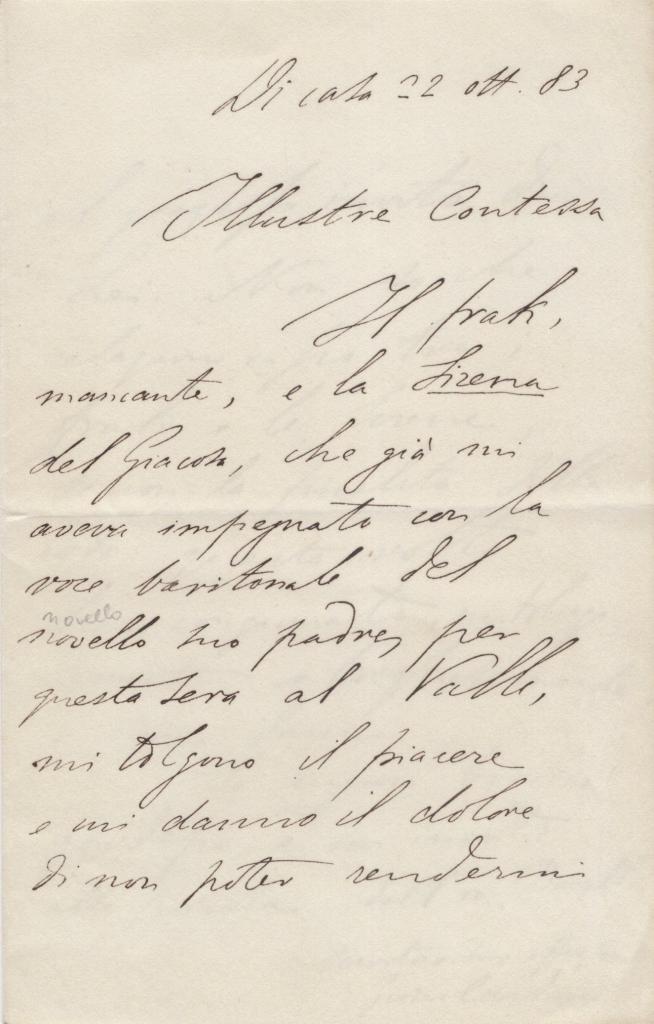 Di casa 22 ott. 83
Illustre Contessa
Il frak,
mancante, e la Sirena
del Giacosa, che già mi
aveva impegnato con la
voce baritonale del
novello
novello suo padre, per
questa sera al Valle,
mi tolgono il piacere
e mi danno il dolore
di non poter rendermi